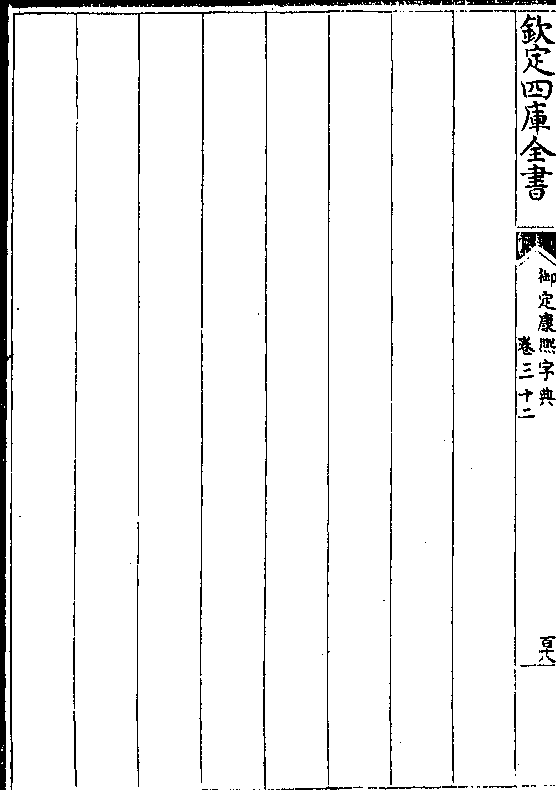 欽定四庫全書
御定康熙字典
卷三十二
百十八